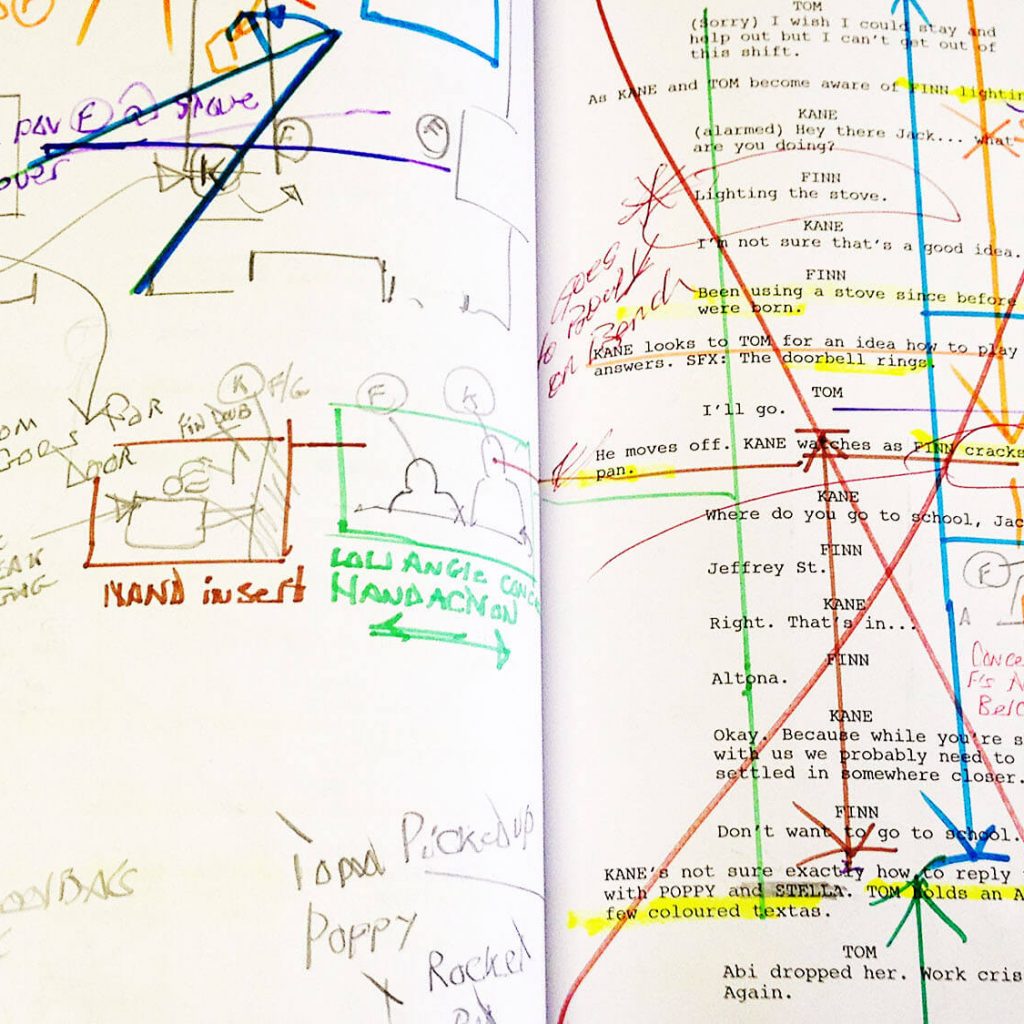 pav F @ stove
over
F
K
K F/G
F
K
GOES
DOOR
HAND insert
LOW ANGLE
HAND ACTION
Picked up
Poppy
Rocket
TOM
(Sorry) I wish I could stay and
help out but I can't get out of
this shift.
As KANE and TOM become aware of FINN lightin
KANE
(alarmed) Hey there Jack... what
are you doing?
FINN
Lighting the stove.
KANE
I'm not sure that's a good idea.
FINN
Been using a stove since before
were born.
Goes
to
on Bench
KANE looks to TOM for an idea how to play
answers. SFX: The doorbell rings.
TOM
I'll go.
He moves off. KANE watches as FINN cracks
pan.
KANE
Where do you go to school, Jac
FINN
Jeffrey St.
F
A
KANE
Right. That's in...
FINN
Altona.
F's
Belo
KANE
Okay. Because while you're s
with us we probably need to
settled in somewhere closer.
FINN
Don't want to go to school.
KANE's not sure exactly how to reply
with POPPY and STELLA. TOM holds an A
few coloured textas.
TOM
Abi dropped her. Work cris
Again.